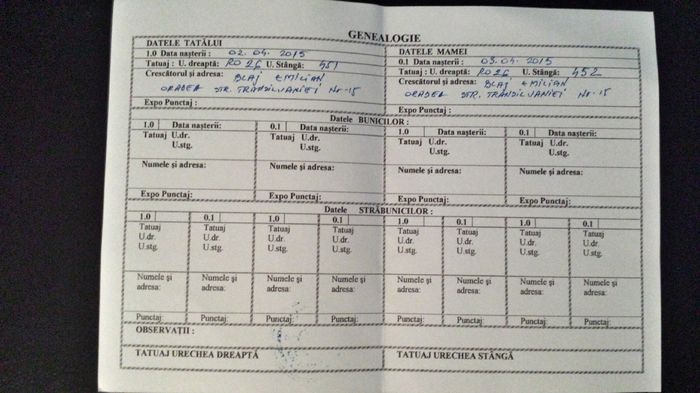 GENEALOGIE
DATELE TATĂLUI
1.0 Data nașterii : 02. 04. 2015
Tatuaj : U. dreaptă: RO 26 U. Stângă: 451
Crescătorul și adresa: BLAJ EMILIAN
ORADEA STR. TRANDILVANIEI Nr-15
Expo Punctaj :
DATELE MAMEI
0.1 Data nașterii : 03. 04. 2015
Tatuaj : U. dreaptă: RO 26 U. Stângă: 452
Crescătorul și adresa: BLAJ EMILIAN
ORADEA STR. TRANDILVANIEI Nr-15
Expo Punctaj :
Datele BUNICILOR :
1.0 Data nașterii: 0.1 Data nașterii: 1.0 Data nașterii: 0.1 Data nașterii:
Tatuaj U.dr. Tatuaj U.dr. Tatuaj U.dr. Tatuaj U.dr.
U.stg. U.stg. U.stg. U.stg.
Numele și adresa: Numele și adresa: Numele și adresa: Numele și adresa:
Expo Punctaj: Expo Punctaj: Expo Punctaj: Expo Punctaj:
Datele STRĂBUNICILOR :
1.0 0.1 1.0 0.1 1.0 0.1 1.0 0.1
Tatuaj Tatuaj Tatuaj Tatuaj Tatuaj Tatuaj Tatuaj Tatuaj
U.dr. U.dr. U.dr. U.dr. U.dr. U.dr. U.dr. U.dr.
U.stg. U.stg. U.stg. U.stg. U.stg. U.stg. U.stg. U.stg.
Numele și Numele și Numele și Numele și Numele și Numele și Numele și Numele și
adresa: adresa: adresa: adresa: adresa: adresa: adresa: adresa:
Punctaj: Punctaj: Punctaj: Punctaj: Punctaj: Punctaj: Punctaj: Punctaj:
OBSERVAȚII :
TATUAJ URECHEA DREAPTĂ TATUAJ URECHEA STÂNGĂ